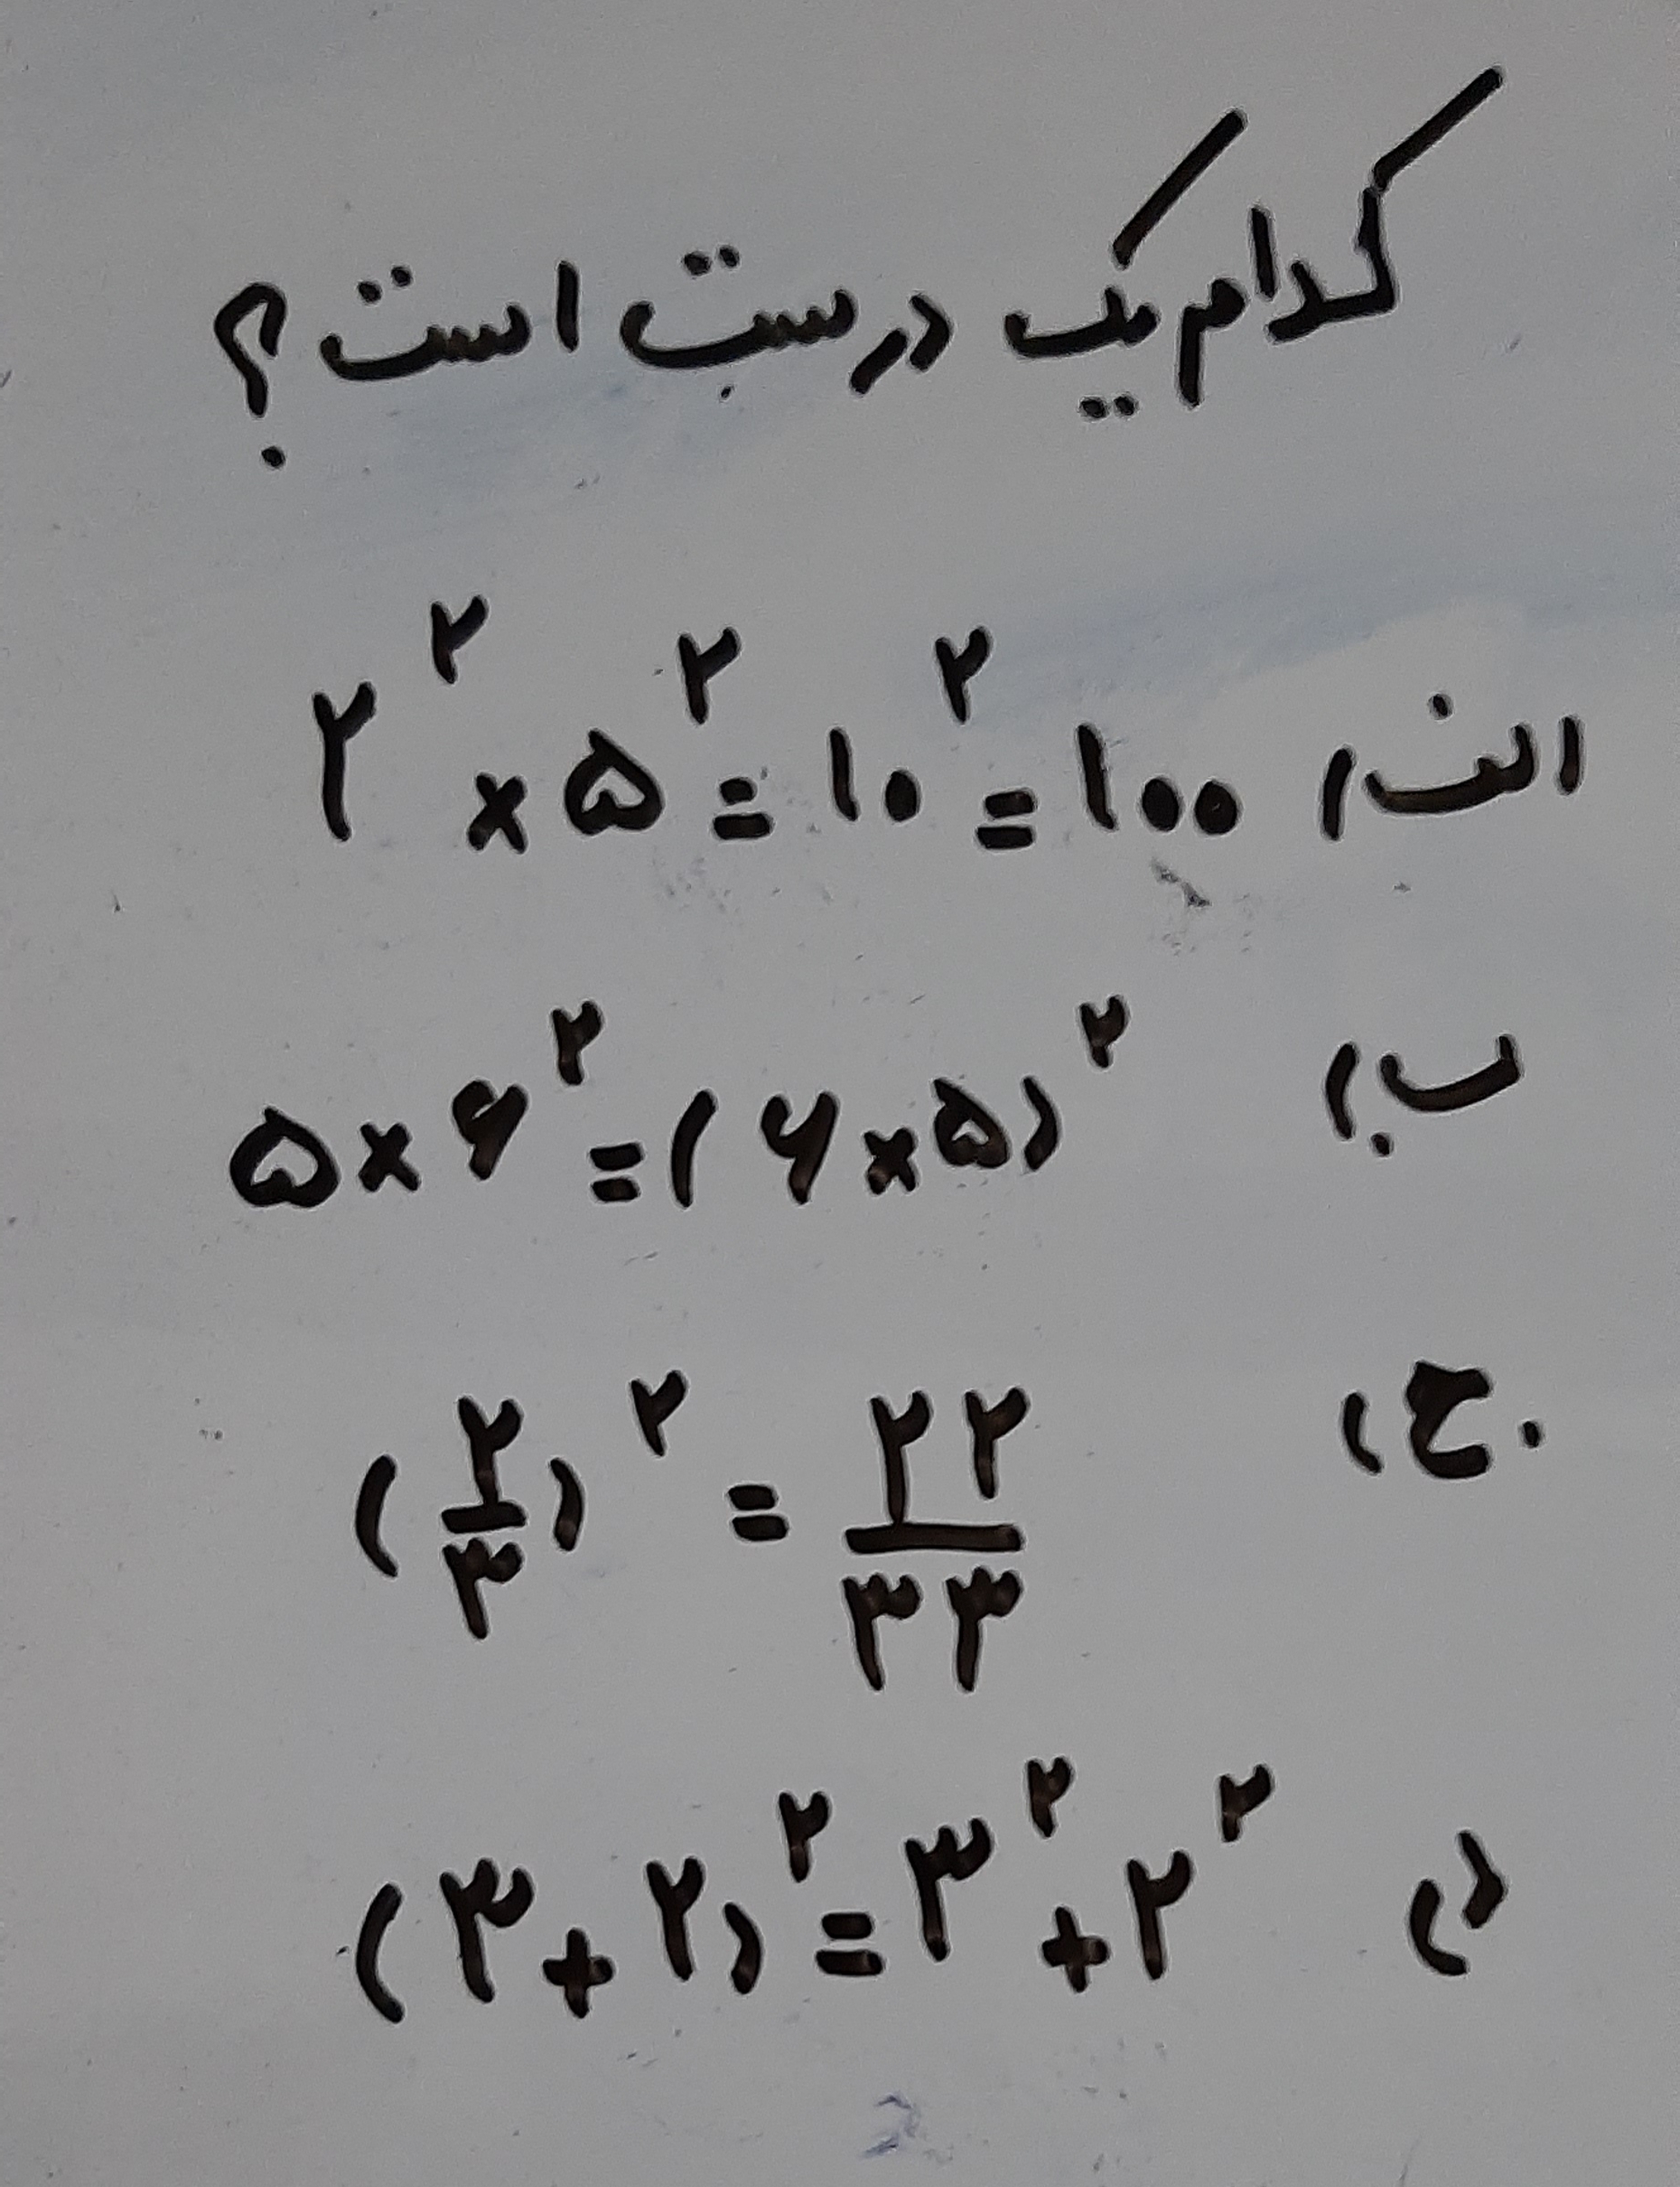 کدام یک درست است؟
الف) ۲^۲ × ۵^۲ = ۱۰^۲ = ۱۰۰
ب) ۵ × ۶^۲ = (۶ × ۵)^۲
ج) (۲/۳)^۲ = ۲۲/۳۳
د) (۳ + ۲)^۲ = ۳^۲ + ۲^۲